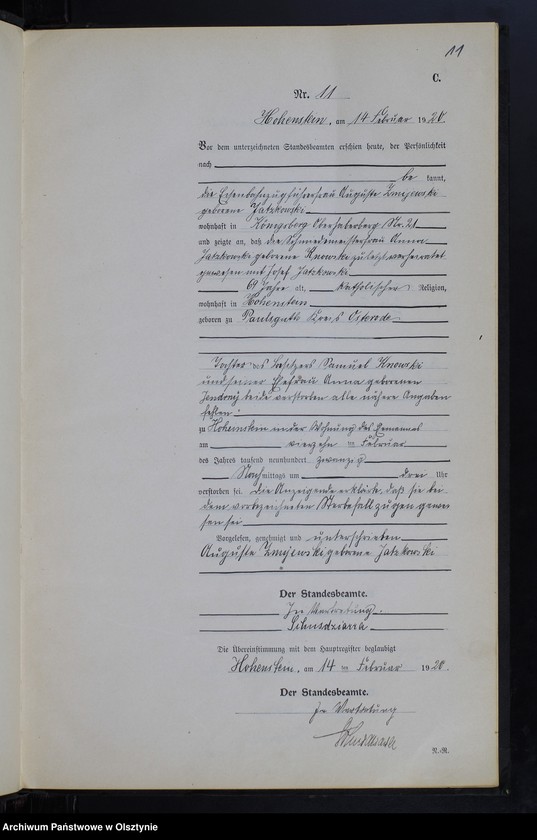 11
C.
Nr. 11
Hohenstein, am 14 Februar 1920
Vor dem unterzeichneten Standesbeamten erschien heute, der Persönlichkeit
nach
be kannt,
die Eisenbahnzugführerfrau Auguste Zmijewski
geborene Jatzkowski
wohnhaft in Königsberg Oberhaberberg Str. 21
und zeigte an, daß die Schmiedemeisterfrau Anna
Jatzkowski geborene Knowski zuletzt verheiratet
gewesen mit Josef Jatzkowski
69 Jahre alt, katholischer Religion,
wohnhaft in Hohenstein
geboren zu Paulsgutt Kreis Osterode
Tochter des Besitzers Samuel Knowski
und seiner Ehefrau Anna geborenen
beide verstorben alle nähere Angaben
fehlen
zu Hohenstein in der Wohnung des
am vierzehn ten Februar
des Jahres tausend neunhundert zwanzig
Nachmittags um drei Uhr
verstorben sei. Die Anzeigende erklärte, daß sie bei
dem vorbezeichneten Sterbefall zugegen gewe
sen sei
Vorgelesen, genehmigt und unterschrieben
Auguste Zmijewski geborene Jatzkowski
Der Standesbeamte.
In Vertretung.
Die Übereinstimmung mit dem Hauptregister beglaubigt
Hohenstein, am 14 ten Februar 1920.
Der Standesbeamte.
In Vertretung
N.-R.
Archiwum Państwowe w Olsztynie